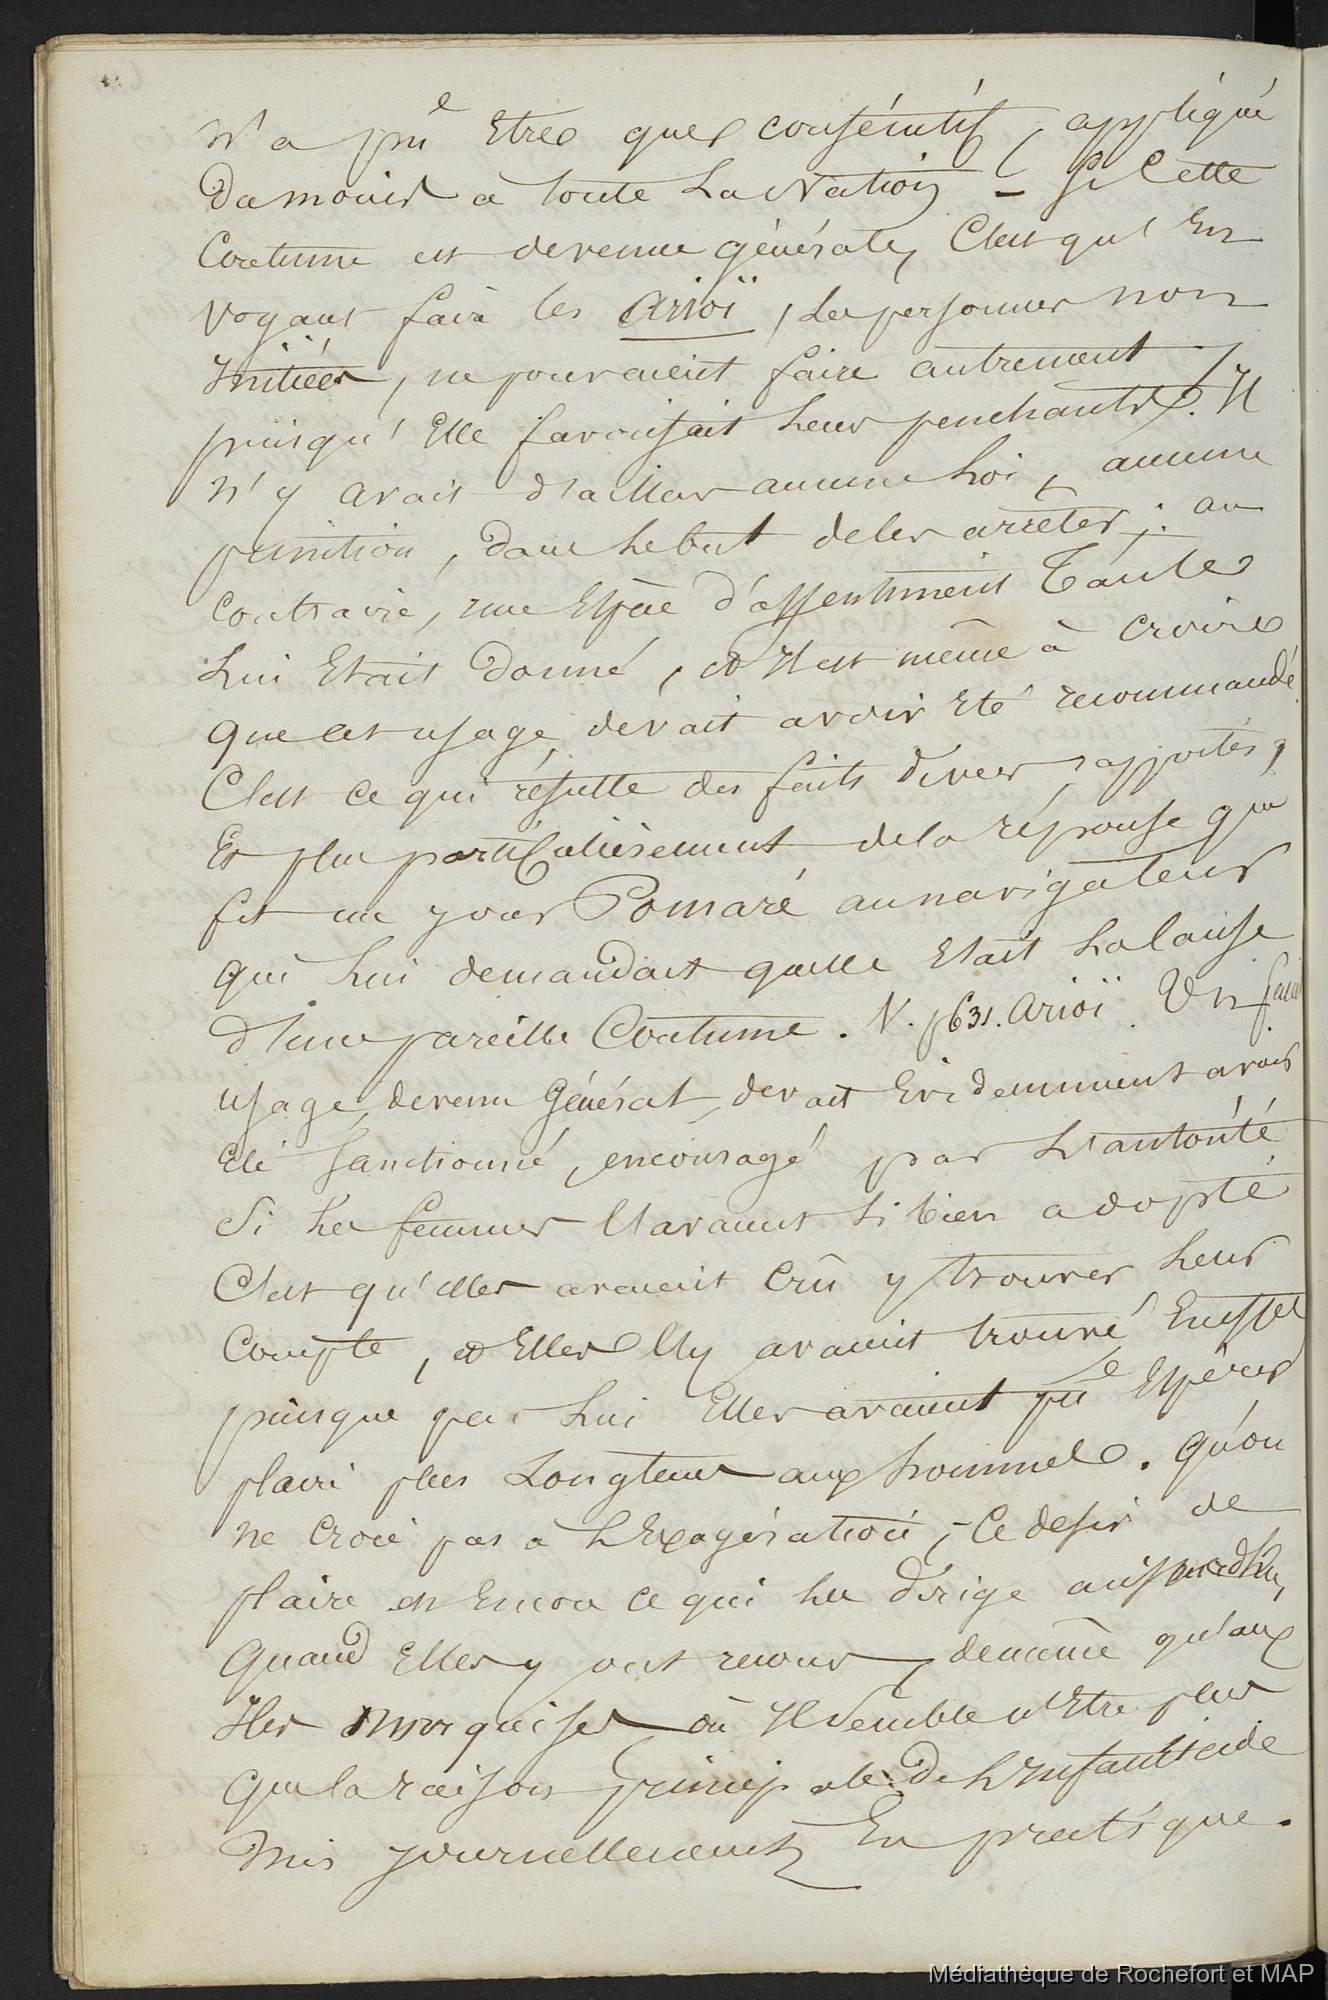 N'a pu Etre que consécutif, appliqué
Du moins a toute La Nation ! – Si Cette
Coutume est devenue générale, C'est qu'En
voyant faire les Arioï, Les personnes non
Initiées, ne pouvaient faire autrement
puisqu'Elle favorisait Leur penchants. Il
n'y avait d'ailleurs aucune Loi, aucune
punition, dans Le but de les arrêter ; au
Contraire, une Espèce d'assentiment Tacite
Lui Etait Donné, et Il est même à croire
que cet usage devait avoir Eté recommandé
C'est ce qui résulte des faits divers rapportés,
Et plus particulièrement de la réponse que
fit un jour Pomaré au navigateur
qui Lui demandait quelle Etait La Cause
d'une pareille Coutume. V. p631. Arioï. Un pareil
usage, devenu Général, devait Evidemment avoir
Eté Sanctionné, encouragé par L'autorité
Si Les femmes L'avaient Si bien adopté
C'est qu'elles avaient Crû y trouver Leur
Compte, et Elles L'y avaient trouvé En effet
puisque par Lui Elles avaient pu Espérer
plaire plus Longtems aux hommes. Qu'on
ne Croie pas a L'Exagération ; – Ce desir de
plaire est Encore ce qui Les Dirige aujourd'hui,
Quand Elles y ont recours, de même qu'aux
Iles Marquises où Il Semble n'Etre plus
que la raison principale De L'Infanticide
Mis journellement En pratique.
Médiathèque de Rochefort et MAP